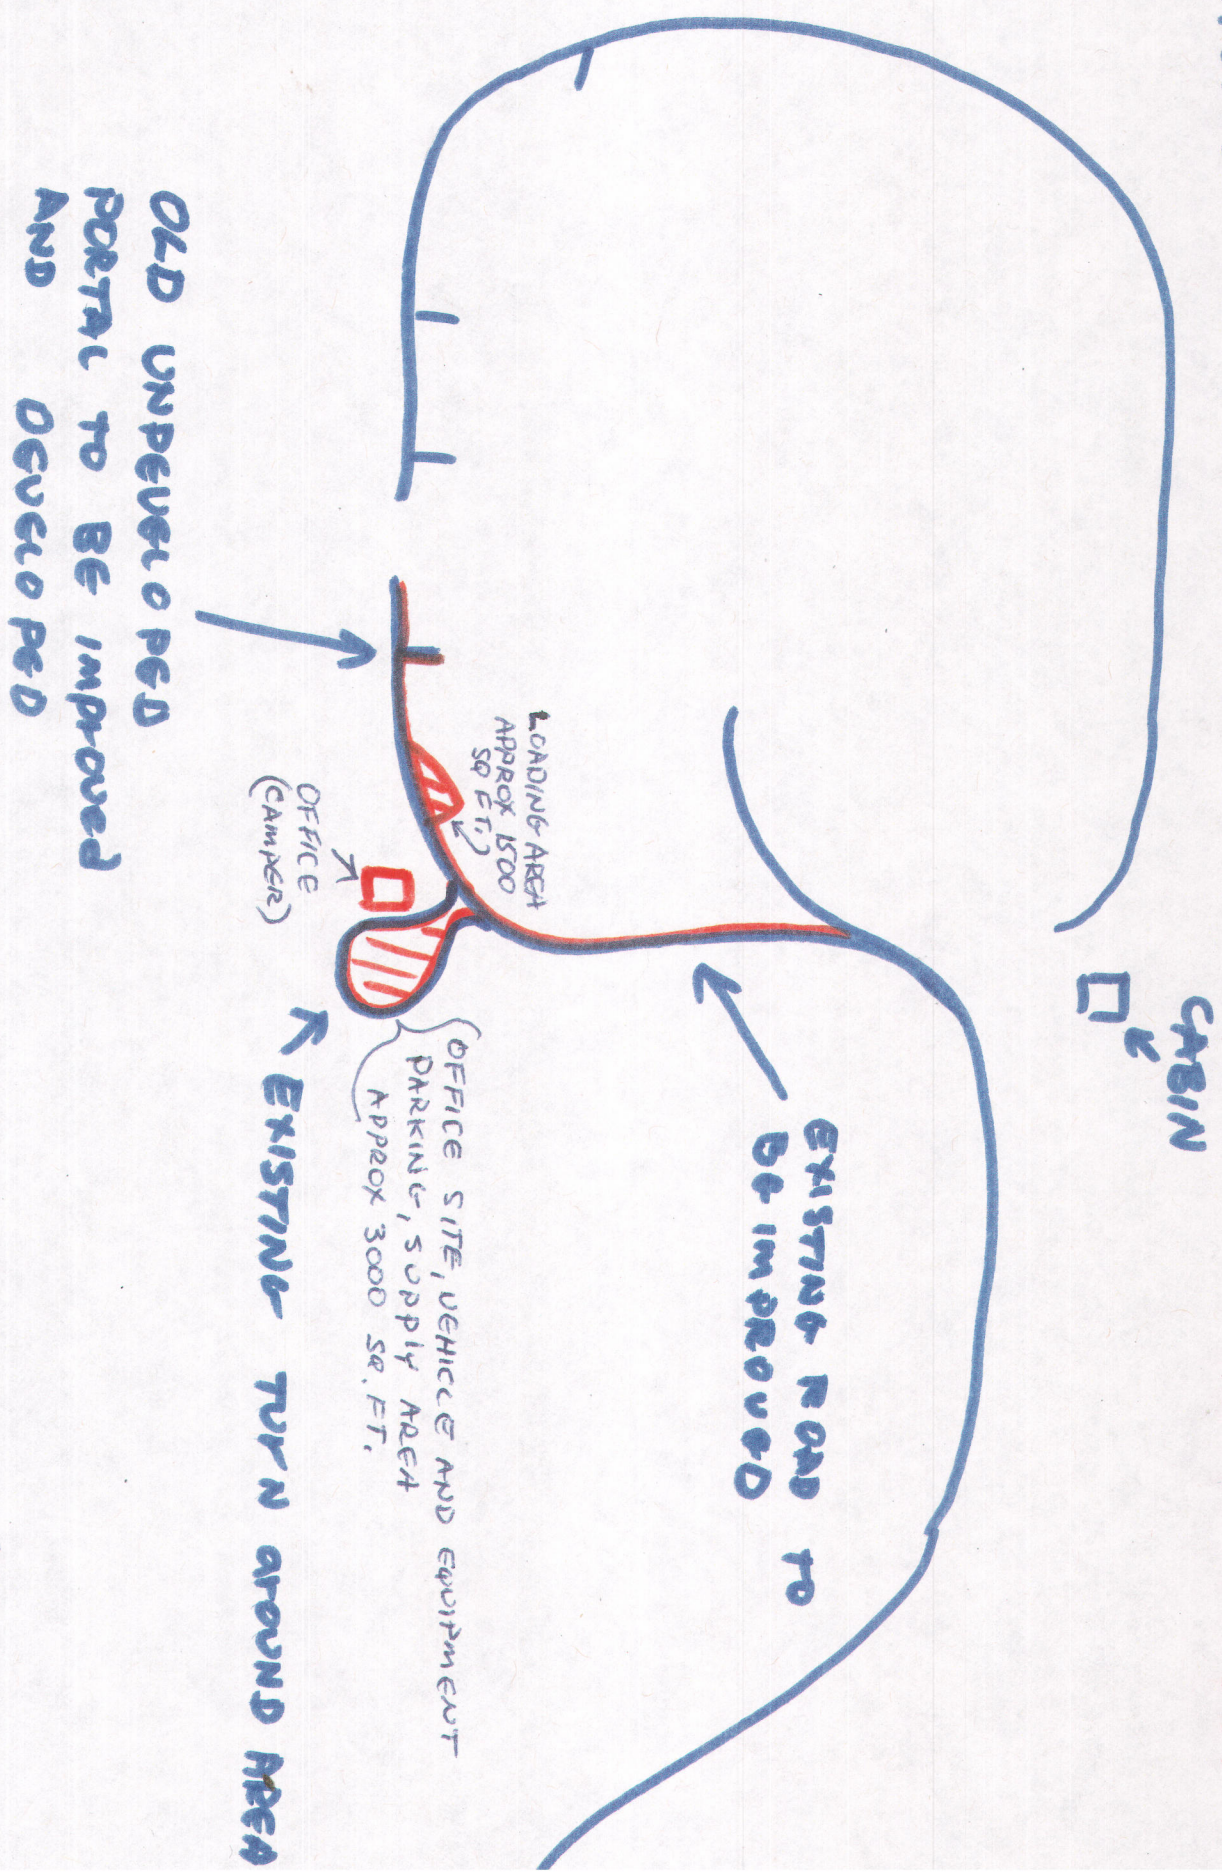 CABIN
EXISTING ROAD TO
BE IMPROVED
LOADING AREA
APPROX 1500
SQ FT.
OFFICE SITE, VEHICLE AND EQUIPMENT
PARKING, SUPPlY AREA
APPROX 3000 SQ. FT.
OFFICE
(CAMPER)
EXISTING TUrN ArOUND AREA
OLD UNDEVELOPED
PORTAL TO BE ImprOVEd
AND DEVELOPED